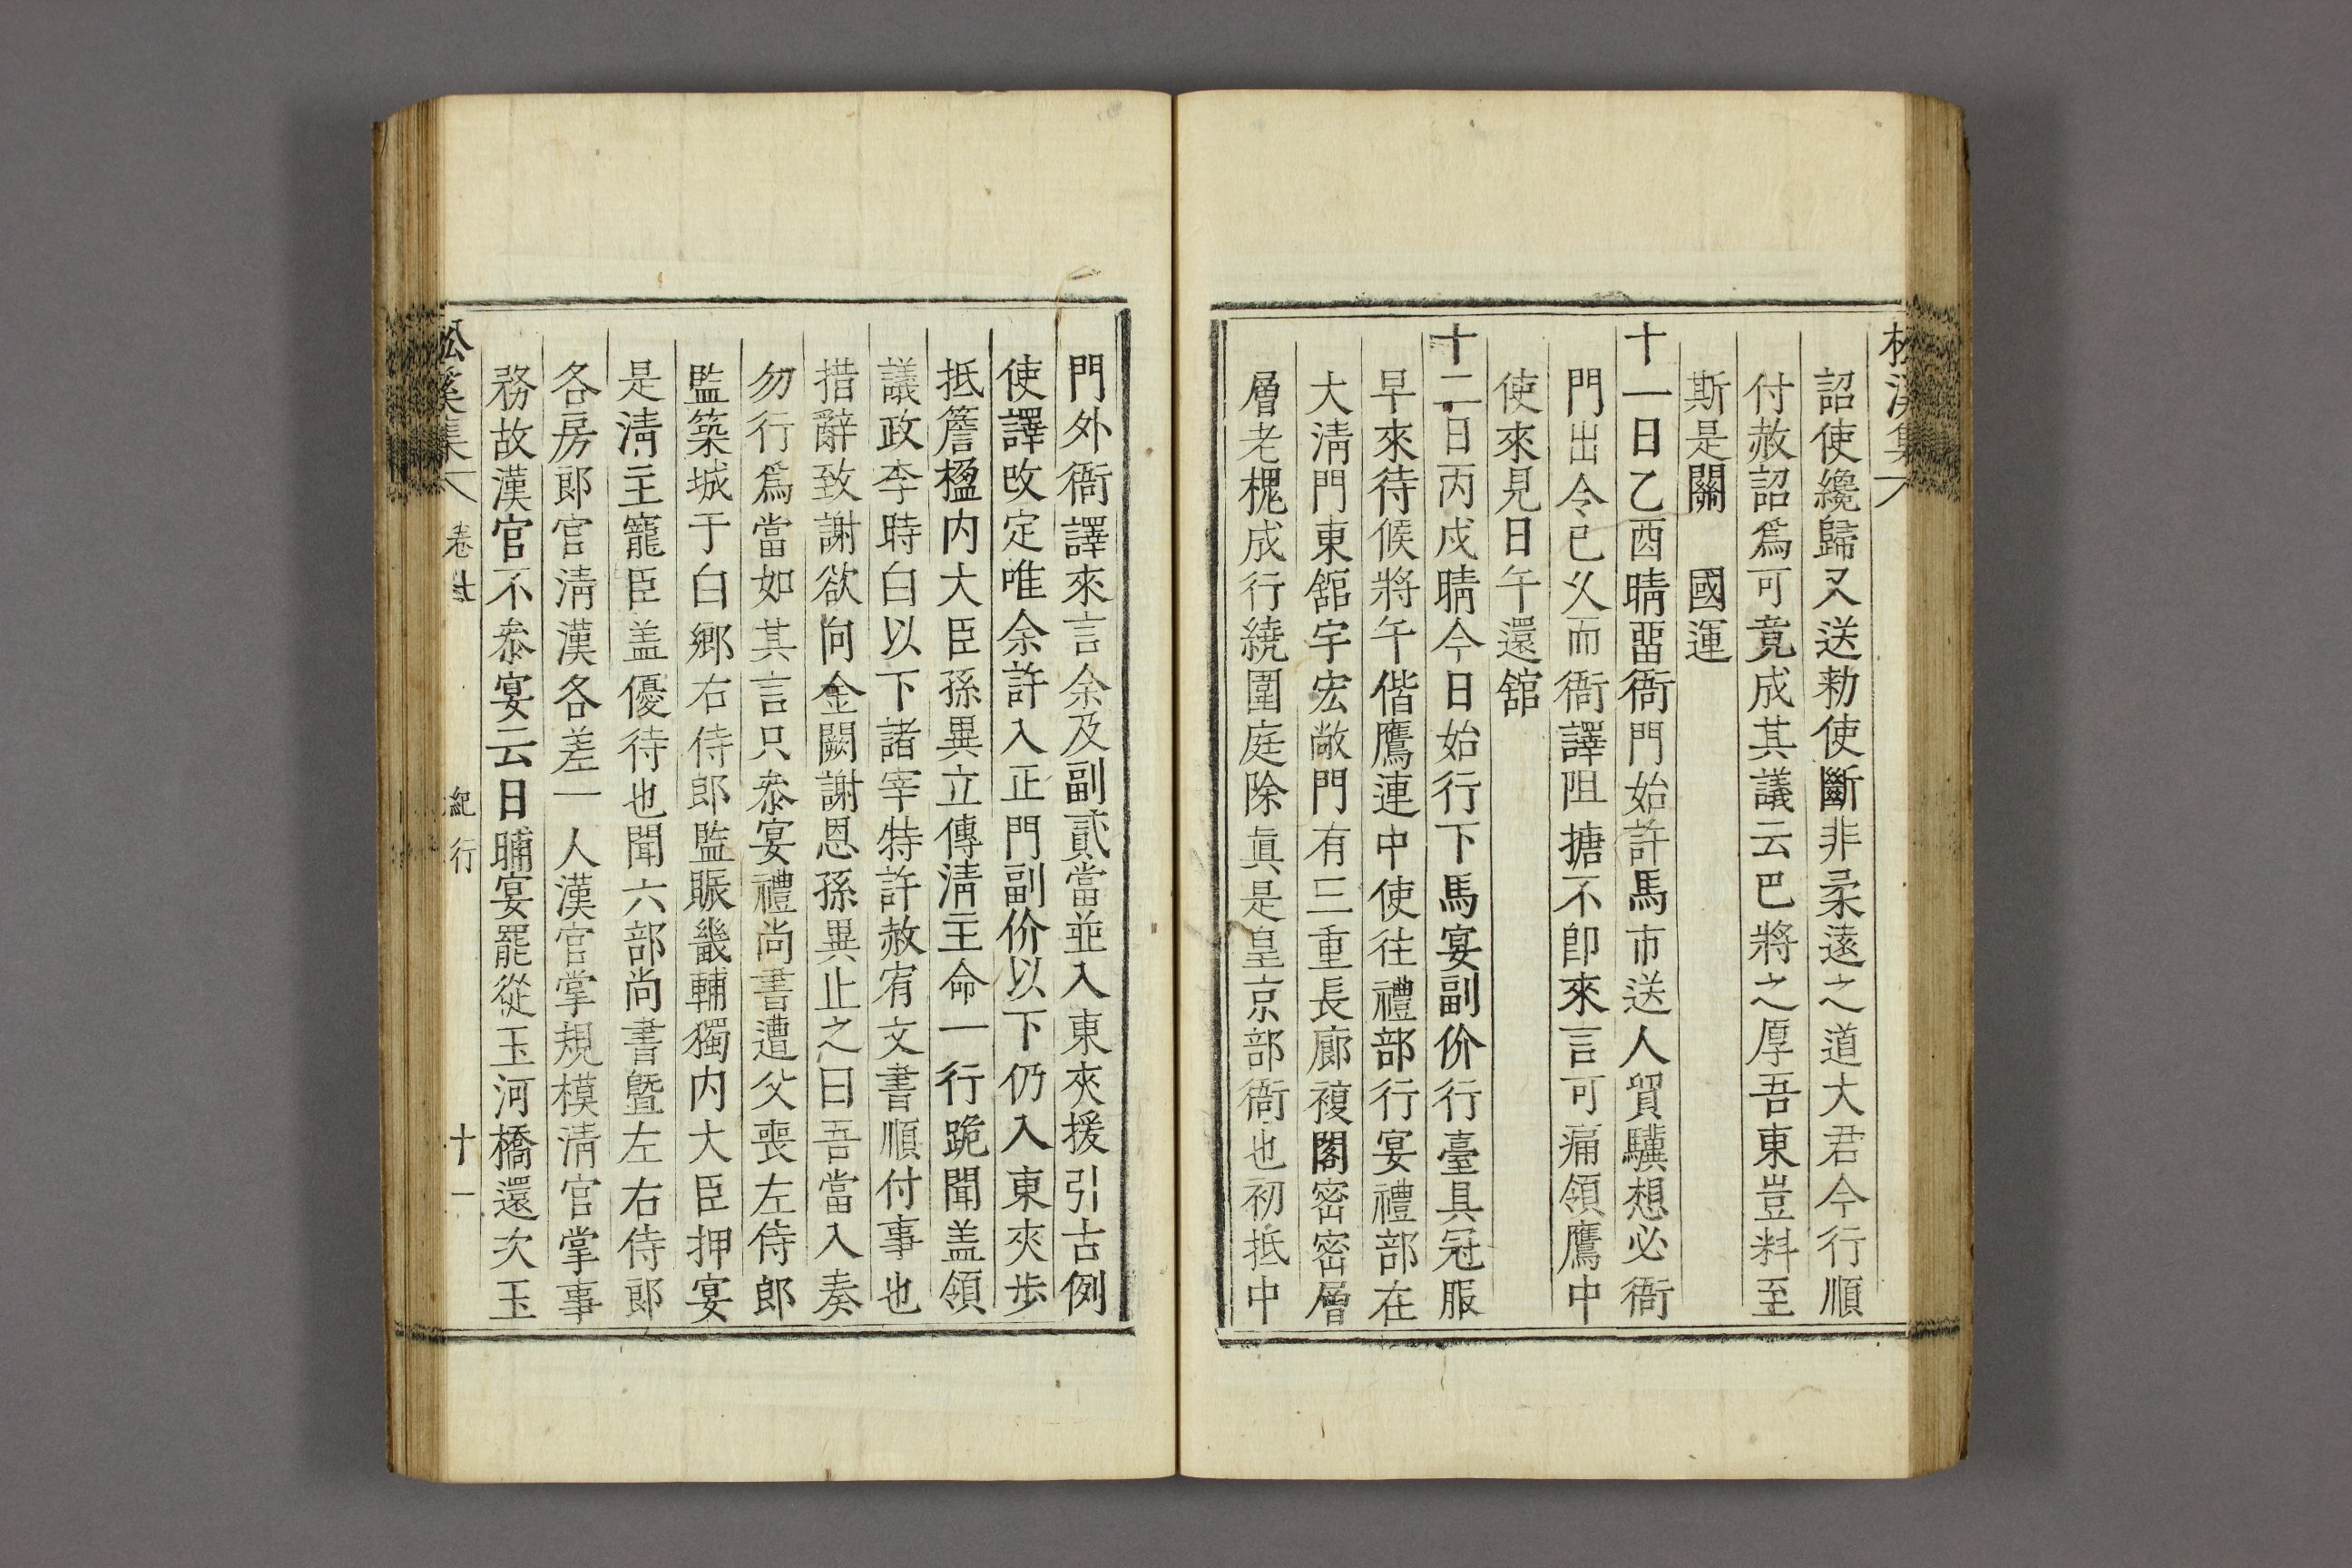 詔使纔歸又送勑使斷非柔遠之道大君今行順
付赦詔爲可竟成其議云巴將之厚吾東豈料至
斯是關　國運
十一日乙酉晴留衙門始許馬市送人貿驥想必衙
門出令已久而衙譯阻搪不卽來言可痛領鷹中
使來見日午還舘
十二日丙戌晴今日始行下馬宴副价行臺具冠服
早來待候將午偕鷹連中使往禮部行宴禮部在
大淸門東舘宇宏敞門有三重長廊複閣密密層
層老槐成行繞圍庭除眞是皇京部衙也初抵中
門外衙譯來言余及副貳當並入東夾援引古例
使譯改定唯余許入正門副价以下仍入東夾步
抵簷楹内大臣孫異立傳淸主命一行跪聞盖領
議政李時白以下諸宰特許赦宥文書順付事也
措辭致謝欲向金闕謝恩孫異止之曰吾當入奏
勿行爲當如其言只叅宴禮尚書遭父喪左侍郎
監築城于白鄕右侍郎監賑畿輔獨内大臣押宴
是淸主寵臣盖優待也聞六部尚書曁左右侍郎
各房郎官淸漢各差一人漢官掌規模淸官掌事
務故漢官不叅宴云日晡宴罷從玉河橋還次玉
松溪集
卷
紀行
十一